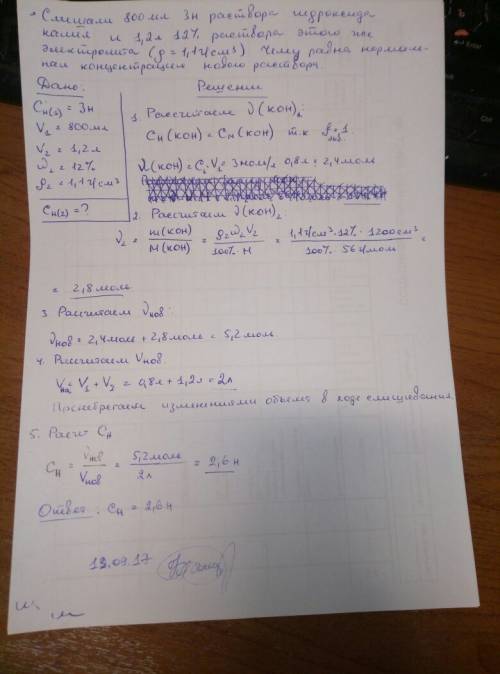 Смешали 800 мл 3н раствора гидроксида
калия и 1,2л 12% раствора этого же
электролита (ρ = 1,1г/см³) Чему равна нормаль-
ная концентрация нового раствора.
Дано:
Cн(1) = 3н
V₁ = 800мл
V₂ = 1,2л
ω₂ = 12%
ρ₂ = 1,1г/см³
Cн(2) = ?
Решение
1. Рассчитаем ν(KOH)₁:
Cн(KOH) = Cм(KOH) т.к
ν(KOH) = C₁·V₁ = 3моль/л · 0,8л = 2,4моль
2. Рассчитаем ν(KOH)₂
ν₂ = m(KOH)/M(KOH) = ρ₂ω₂V₂/100%·M = 1,1г/см³·12%·1200см³/100%·56г/моль =
= 2,8моль
3. Рассчитаем νнов:
νнов = 2,4моль + 2,8моль = 5,2моль
4. Рассчитаем Vнов.
Vнов = V₁ + V₂ = 0,8л + 1,2л = 2л
Пренебрегаем изменениями объема в ходе смешивания.
5. Расчет Cн
Cн = νнов/Vнов = 5,2моль/2л = 2,6н
Ответ: Cн = 2,6н
13.09.17